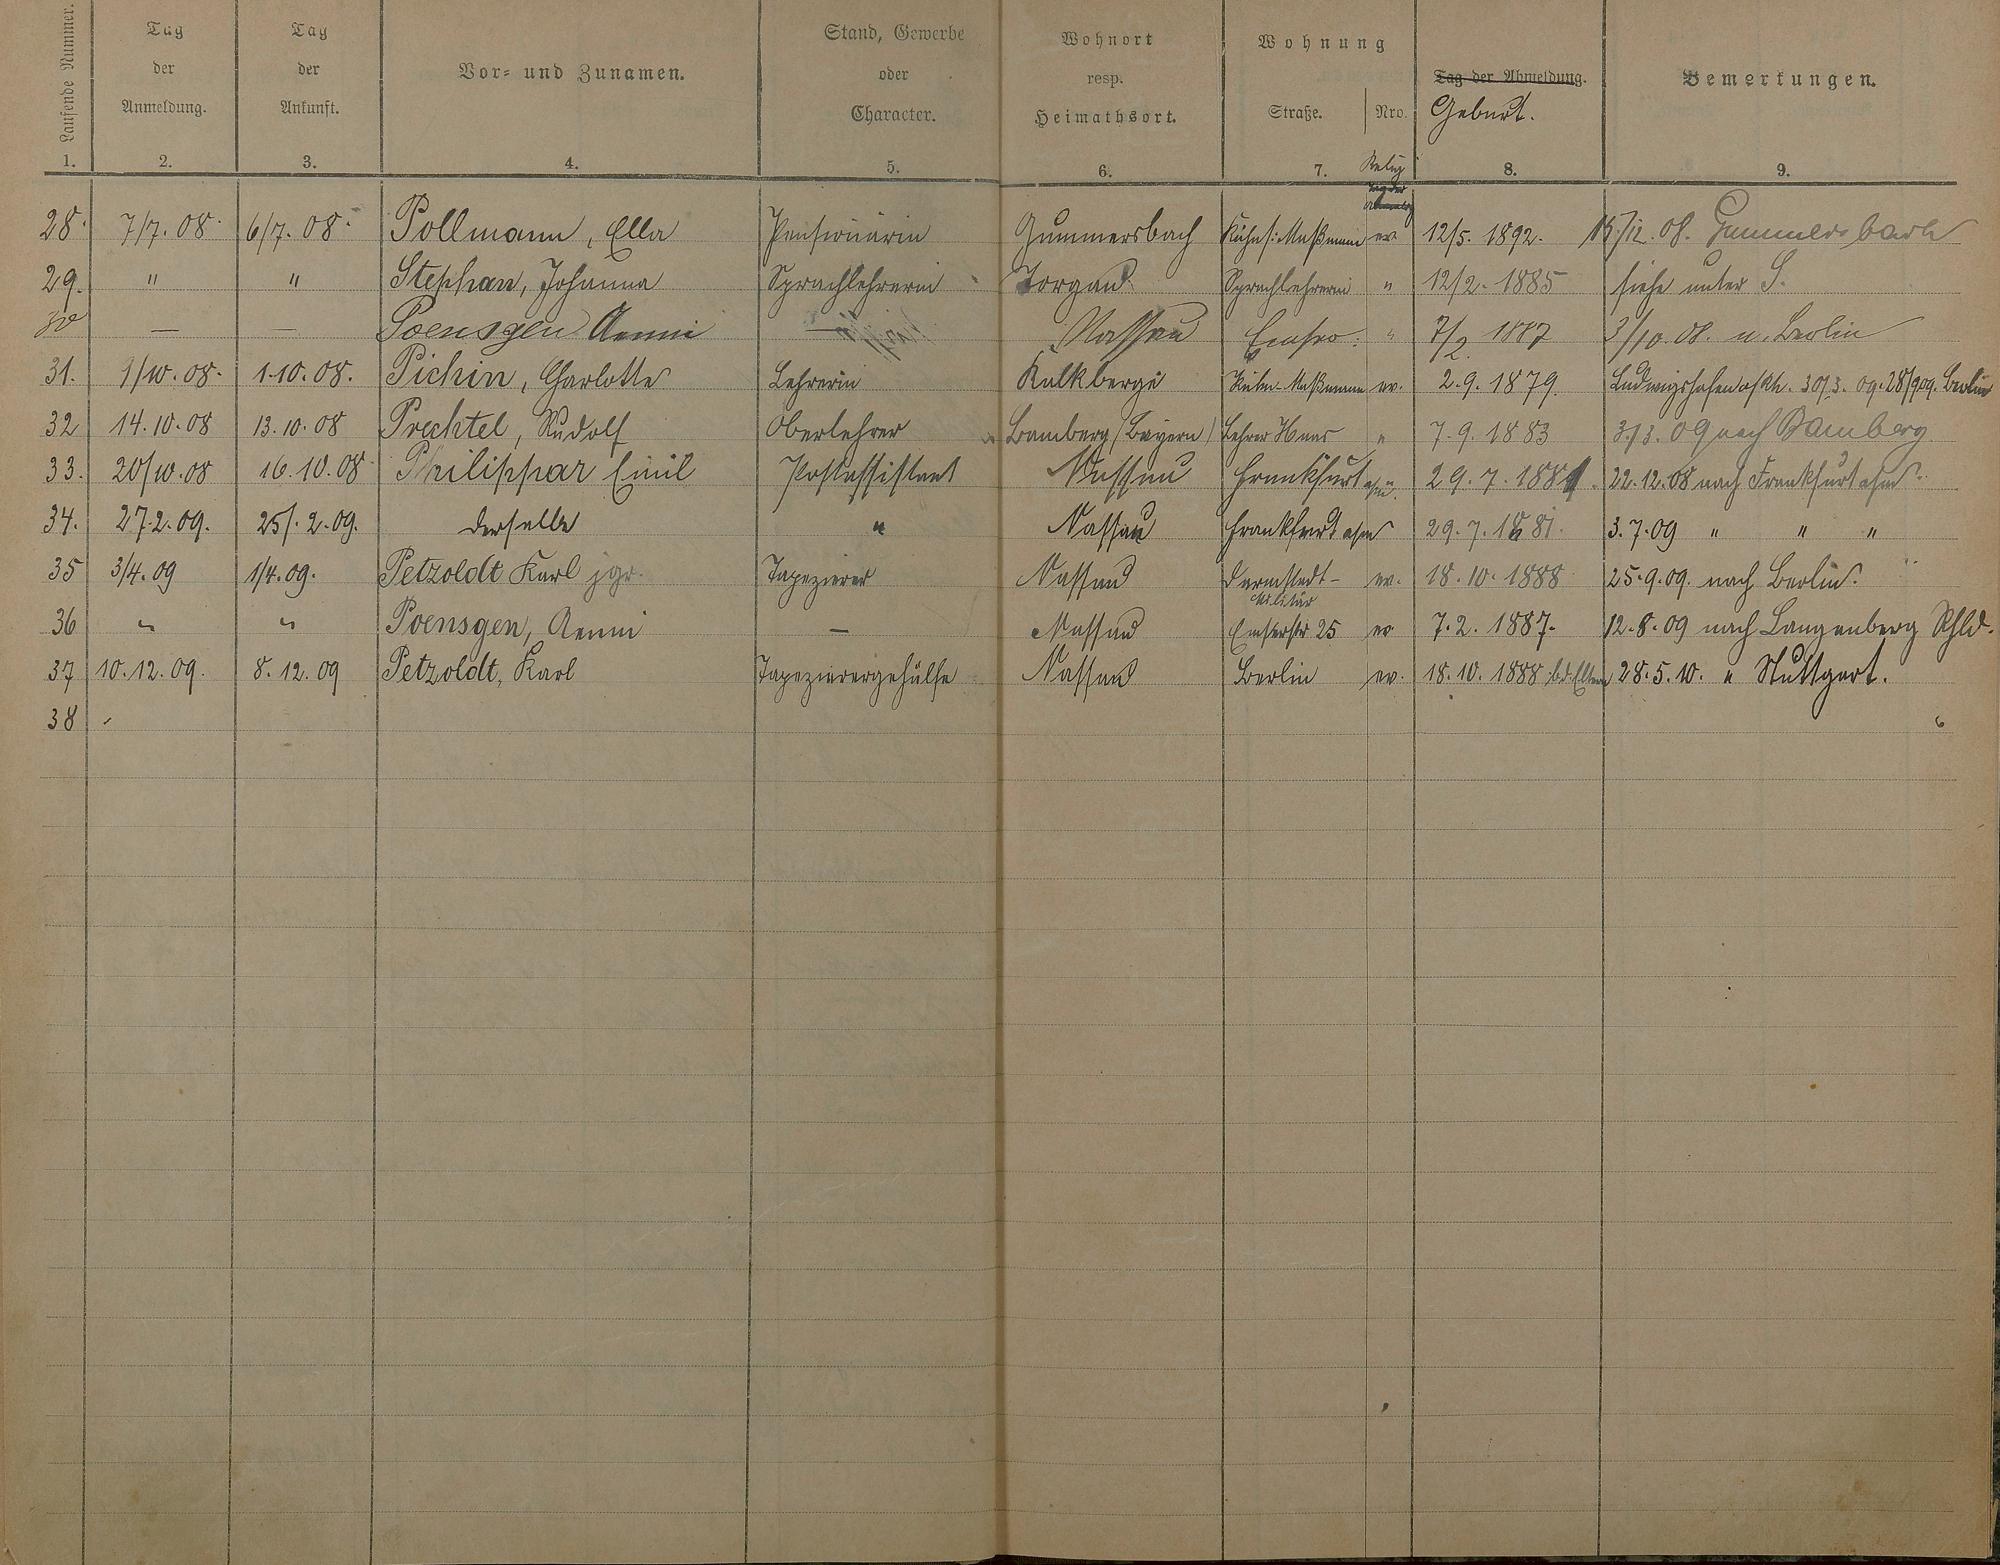 Laufende Nummer. Tag der Anmeldung. Tag der Ankunft. Vor- und Zunamen. Stand, Gewerbe oder Character. Wohnort resp. Heimathsort. Wohnung Straße. Nro. Tag der Abmeldung. Geburt. Bemerkungen.
1. 2. 3. 4. 5. 6. 7. Relig 8. 9.
28. 7/7. 08. 6/7. 08. Pollmann, Ella Pensionärin Gummersbach ev. 12/5. 1892. 15/12. 08. Gummersbach
29. " " Stephan, Johanna Sprachlehrerin Torgau. Sprachlehrerin " 12/2. 1885 siehe unter S.
30 — — Poensgen Aenni — Nassau " 7/2. 1887 3/10. 08. n. Berlin
31. 1/10. 08. 1.10. 08. Pichin, Charlotte Lehrerin Kalkberge ev. 2.9. 1879. Ludwigshafen a/Rh. 30/3. 09. 28/9 09. Berlin
32 14.10.08 13.10.08 Prechtel, Rudolf Oberlehrer Bamberg (Bayern) Lehrer Haas " 7.9. 1883 31/3. 09 nach Bamberg.
33. 20/10.08 16.10.08 Philippar Emil Postassistent Nassau Frankfurt a/m. 29.7.1881. 22.12.08 nach Frankfurt a/m.
34. 27.2.09. 25/.2.09. derselbe " Nassau Frankfurt a/m 29.7.1881. 3.7.09 " " "
35 3/4.09 1/4.09. Petzoldt Karl jgr. Tapezierer Nassau Darmstadt- Militär ev. 18.10.1888 25.9.09. nach Berlin.
36 " " Poensgen, Aenni — Nassau Emserstr 25 ev 7.2. 1887. 12.8.09 nach Langenberg Rhld.
37 10.12.09. 8.12.09 Petzoldt, Karl Tapezierergehülfe Nassau Berlin ev. 18.10.1888 b.d. Eltern 28.5.10. " Stuttgart.
38